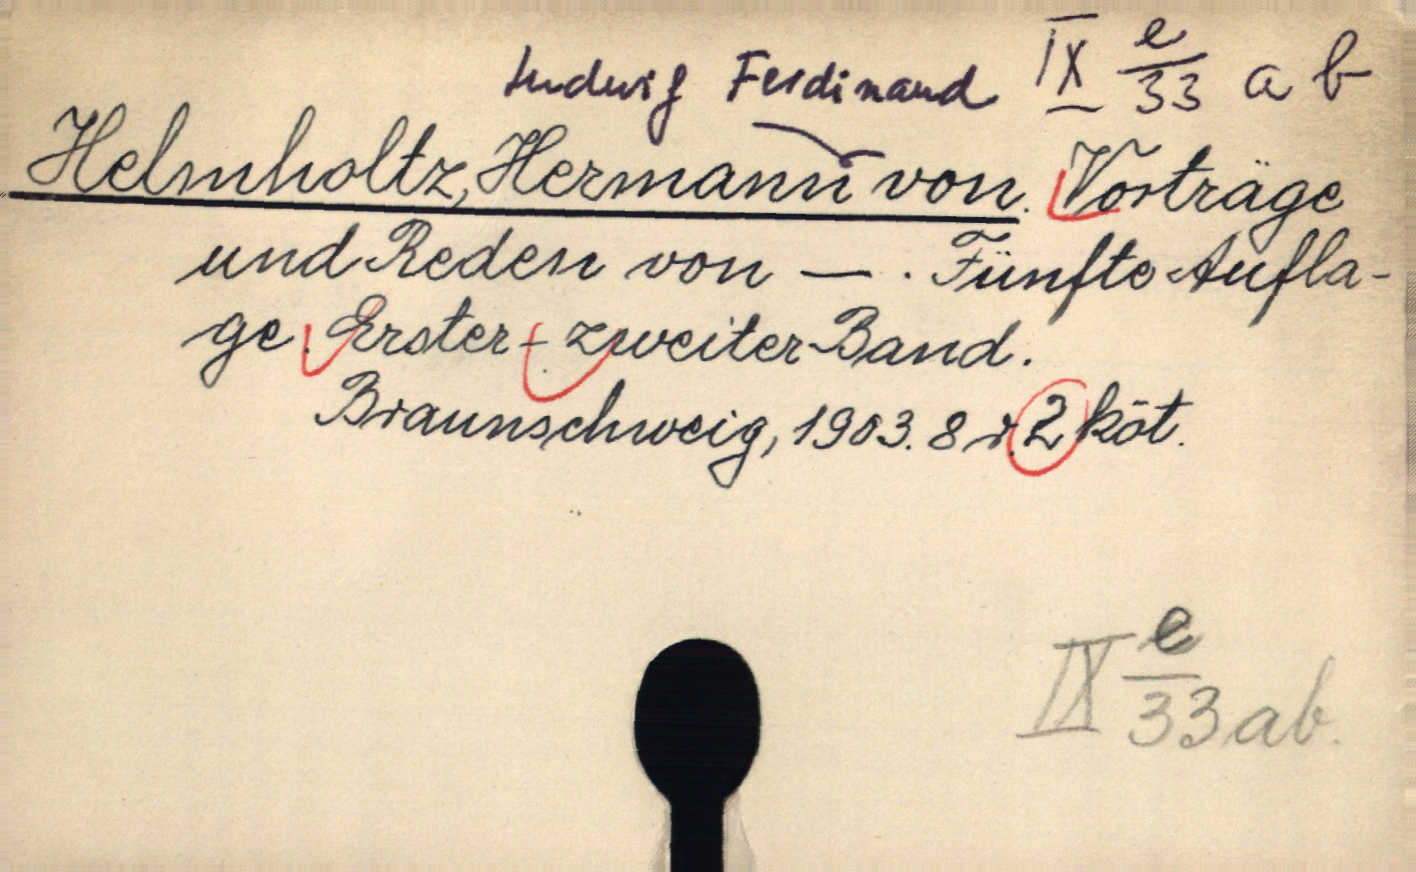 Ludwig Ferdinand IX e/33 a b
Helmholtz, Hermann von. Vorträge
und Reden von — . Fünfte Aufla-
ge. Erster - zweiter Band.
Braunschweig, 1903. 8 r. 2 köt.
IX e/33 ab.